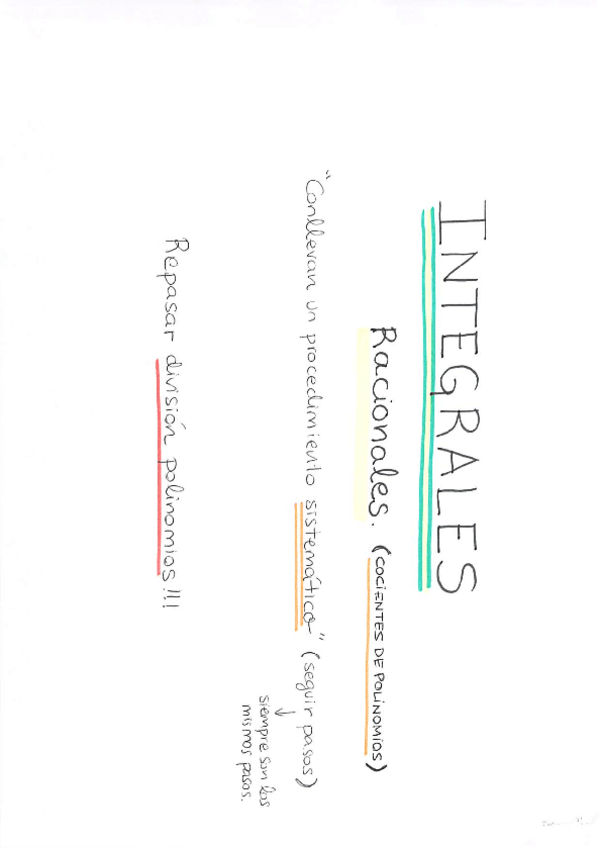 INTEGRALES
Racionales. (COCIENTES DE POLINOMIOS)
"Conllevan un procedimiento sistemático" (seguir pasos)
↓
siempre son los
mismos pasos.
Repasar división polinomios!!!